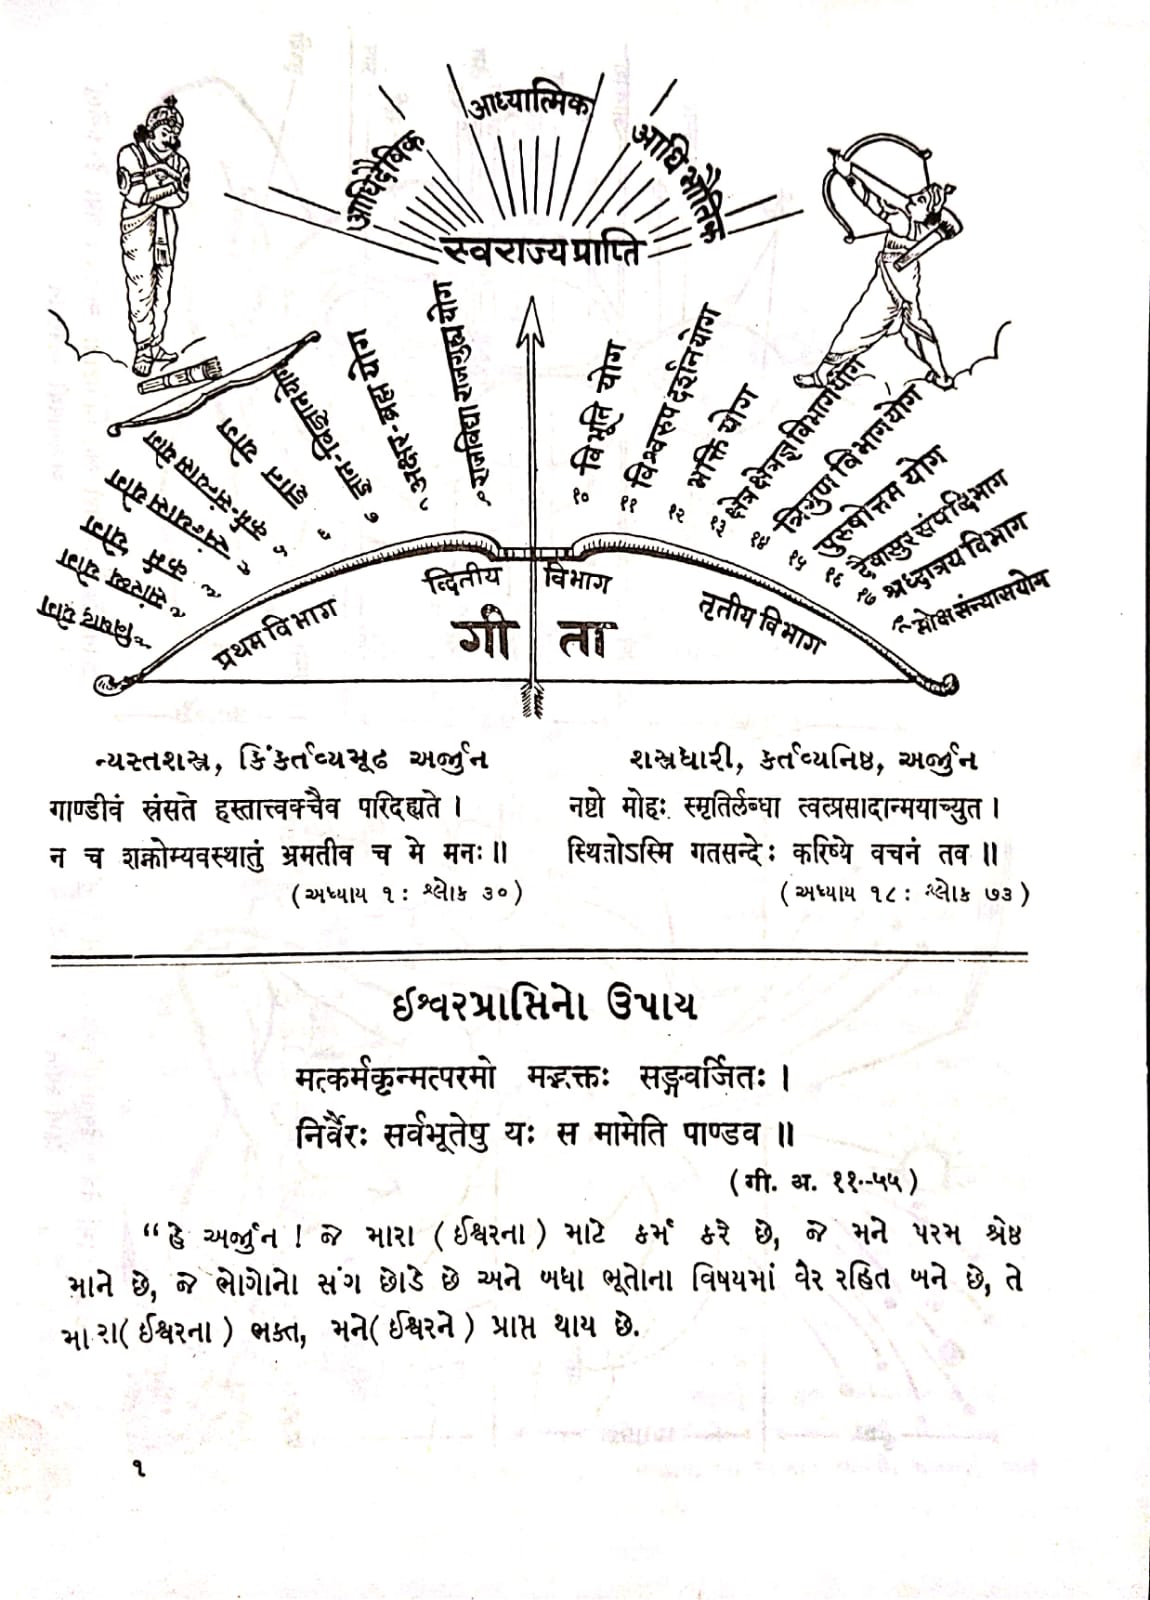 आध्यात्मिक
आधिदैविक
आधि भौतिक
स्वराज्य प्राप्ति
विषाद योग
सांख्य योग
कर्म योग
संन्यास योग
कर्म-सन्यास योग
ज्ञान योग
७ ज्ञान-विज्ञान योग
८ अक्षर-ब्रह्म योग
९ राजविद्या राजगुह्य योग
१० विभूति योग
११ विश्वरूप दर्शन योग
१२ भक्ति योग
१३ क्षेत्र क्षेत्रज्ञ विभाग योग
१४ त्रिगुण विभाग योग
१५ पुरुषोत्तम योग
१६ दैवासुर संपद्विभाग
१७ श्रध्दात्रय विभाग
मोक्ष संन्यास योग
प्रथम विभाग
व्दितीय विभाग
तृतीय विभाग
गी ता
ન્યસ્તશસ્ત્ર, કિંકર્તવ્યમૂઢ અર્જુન
गाण्डीवं स्त्रंसते हस्तात्त्वक्चैव परिदह्यते ।
न च शक्नोम्यवस्थातुं भ्रमतीव च मे मनः ॥
(અધ્યાય ૧ : શ્લોક ૩૦)
શસ્ત્રધારી, કર્તવ્યનિષ્ઠ, અર્જુન
नष्टो मोहः स्मृतिर्लब्धा त्वत्प्रसादान्मयाच्युत ।
स्थितोऽस्मि गतसन्देः करिष्ये वचनं तव ॥
(અધ્યાય ૧૮ : શ્લોક ૭૩)
ઈશ્વરપ્રાપ્તિનો ઉપાય
मत्कर्मकृन्मत्परमो मद्भक्तः सङ्गवर्जितः ।
निर्वैरः सर्वभूतेषु यः स मामेति पाण्डव ॥
(गी. अ. ११-५५)
“હે અર્જુન ! જે મારા (ઈશ્વરના) માટે કર્મ કરે છે, જે મને પરમ શ્રેષ્ઠ
માને છે, જે ભોગોનો સંગ છોડે છે અને બધા ભૂતોના વિષયમાં વેર રહિત બને છે, તે
મારા(ઈશ્વરના) ભક્ત, મને(ઈશ્વરને) પ્રાપ્ત થાય છે.
૧